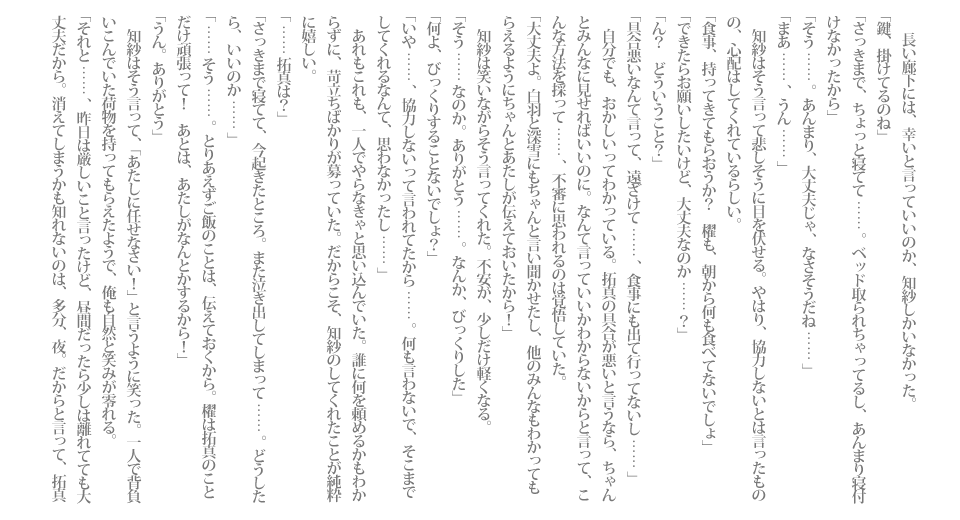 長い廊下には、幸いと言っていいのか、知紗しかいなかった。
「鍵、掛けてるのね」
「さっきまで、ちょっと寝てて……。ベッド取られちゃってるし、あんまり寝付
けなかったから」
「そう……。あんまり、大丈夫じゃ、なさそうだね……」
「まあ……、うん……」
知紗はそう言って悲しそうに目を伏せる。やはり、協力しないとは言ったもの
の、心配はしてくれているらしい。
「食事、持ってきてもらおうか？　櫂も、朝から何も食べてないでしょ」
「できたらお願いしたいけど、大丈夫なのか……？」
「ん？　どういうこと？」
「具合悪いなんて言って、遠ざけて……、食事にも出て行ってないし……」
自分でも、おかしいってわかっている。拓真の具合が悪いと言うなら、ちゃん
とみんなに見せればいいいのに。なんて言っていいかわからないからと言って、こ
んな方法を採って……、不審に思われるのは覚悟していた。
「大丈夫よ。白羽と深雪にもちゃんと言い聞かせたし、他のみんなもわかっても
らえるようにちゃんとあたしが伝えておいたから！」
知紗は笑いながらそう言ってくれた。不安が、少しだけ軽くなる。
「そう……なのか。ありがとう……。なんか、びっくりした」
「何よ、びっくりすることないでしょ？」
「いや……、協力しないって言われてたから……。何も言わないで、そこまで
してくれるなんて、思わなかったし……」
あれもこれも、一人でやらなきゃと思い込んでいた。誰に何を頼めるかもわか
らずに、苛立ちばかりが募っていた。だからこそ、知紗のしてくれたことが純粋
に嬉しい。
「……拓真は？」
「さっきまで寝てて、今起きたところ。また泣き出してしまって……。どうした
ら、いいのか……」
「……そう……。とりあえずご飯のことは、伝えておくから。櫂は拓真のこと
だけ頑張って！　あとは、あたしがなんとかするから！」
「うん。ありがとう」
知紗はそう言って、「あたしに任せなさい！」と言うように笑った。一人で背負
いこんでいた荷物を持ってもらえたようで、俺も自然と笑みが零れる。
「それと……、昨日は厳しいこと言ったけど、昼間だったら少しは離れてても大
丈夫だから。消えてしまうかも知れないのは、多分、夜。だからと言って、拓真